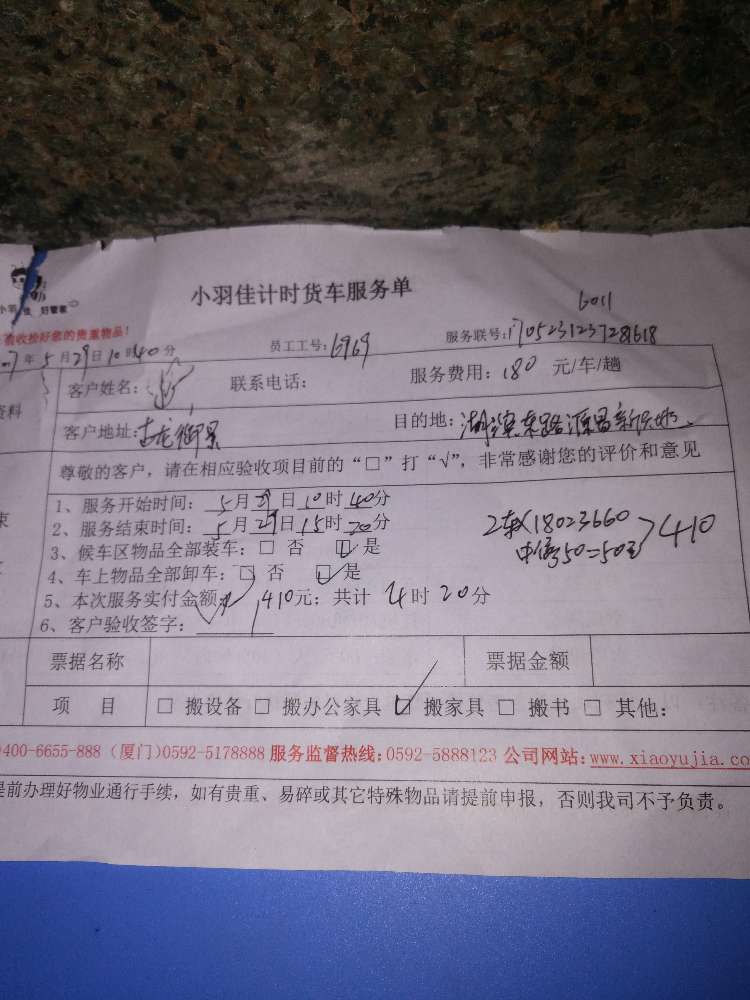 小羽佳计时货车服务单
小羽佳 好管家
验收捡好您的贵重物品!
6011
7年5月29日10时40分 员工工号:6969 服务联号:170523123728618
客户姓名: 联系电话: 服务费用:180 元/车/趟
资料
客户地址:古龙御景 目的地:湖滨东路源昌新天地
尊敬的客户，请在相应验收项目前的“□”打“√”，非常感谢您的评价和意见
1、服务开始时间: 5月29日10时40分
2、服务结束时间: 5月29日15时20分
3、候车区物品全部装车: □ 否 ☑ 是
4、车上物品全部卸车: □ 否 ☑ 是
5、本次服务实付金额: 410元; 共计 4时20分
6、客户验收签字:
2车X180=360
50=50元
>410
票据名称 票据金额
项 目 □ 搬设备 □ 搬办公家具 ☑ 搬家具 □ 搬书 □ 其他:
400-6655-888（厦门）0592-5178888 服务监督热线:0592-5888123 公司网站:www.xiaoyujia.co
提前办理好物业通行手续，如有贵重、易碎或其它特殊物品请提前申报，否则我司不予负责。